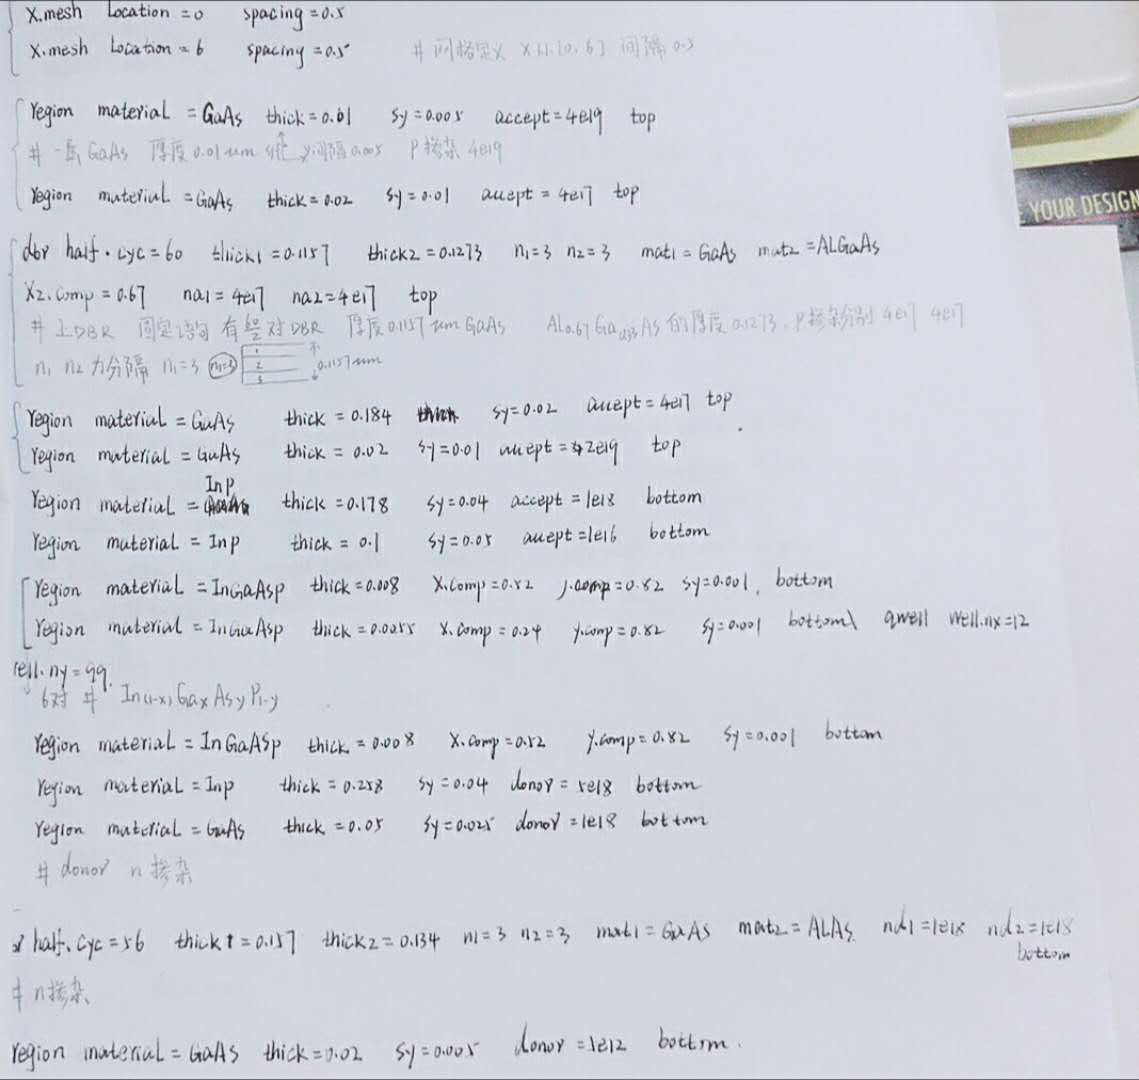 X.mesh Location =0 spacing =0.5
X.mesh Location = 6 spacing =0.5 # 网格定义 X [0.6] 间隔 0.5
region material = GaAs thick=0.01 sy=0.005 accept=4e19 top
# 一层 GaAs 厚度 0.01um y间隔 0.005 P掺杂 4e19
region material = GaAs thick=0.02 sy=0.01 accept = 4e17 top
YOUR DESIGN
dbr half.cyc=60 thick1=0.1157 thick2=0.1273 n1=3 n2=3 mat1=GaAs mat2=ALGaAs
X2.comp=0.67 na1=4e17 na2=4e17 top
# 上DBR 固定语句 有 对DBR 厚度0.1157um GaAs Al0.67Ga0.33As 的厚度0.1273, P掺杂分别 4e17 4e17
n1 n2 为分隔 n1=3 n1=3 1 2 3 0.1157um
region material = GaAs thick = 0.184 sy=0.02 accept=4e17 top
region material = GaAs thick = 0.02 sy=0.01 accept=2e19 top
region material = InP thick=0.178 sy=0.04 accept=1e18 bottom
region material = InP thick = 0.1 sy=0.05 accept=1e16 bottom
region material = InGaAsP thick=0.008 X.comp=0.52 y.comp=0.82 sy=0.001, bottom
region material = InGaAsP thick=0.0055 X.comp=0.24 y.comp=0.82 sy=0.001 bottom\ qwell well.nx=12
well.ny=99.
6对 # In(1-x)GaxAsyP1-y
region material = InGaAsP thick=0.008 X.comp=0.52 y.comp=0.82 sy=0.001 bottom
region material = InP thick=0.258 sy=0.04 donor=5e18 bottom
region material = GaAs thick=0.05 sy=0.025 donor=1e18 bottom
# donor n掺杂
half.cyc=56 thick1=0.157 thick2=0.134 n1=3 n2=3 mat1=GaAs mat2=ALAs nd1=1e18 nd2=1e18
bottom
# n掺杂
region material = GaAs thick=0.02 sy=0.005 donor=1e12 bottom.